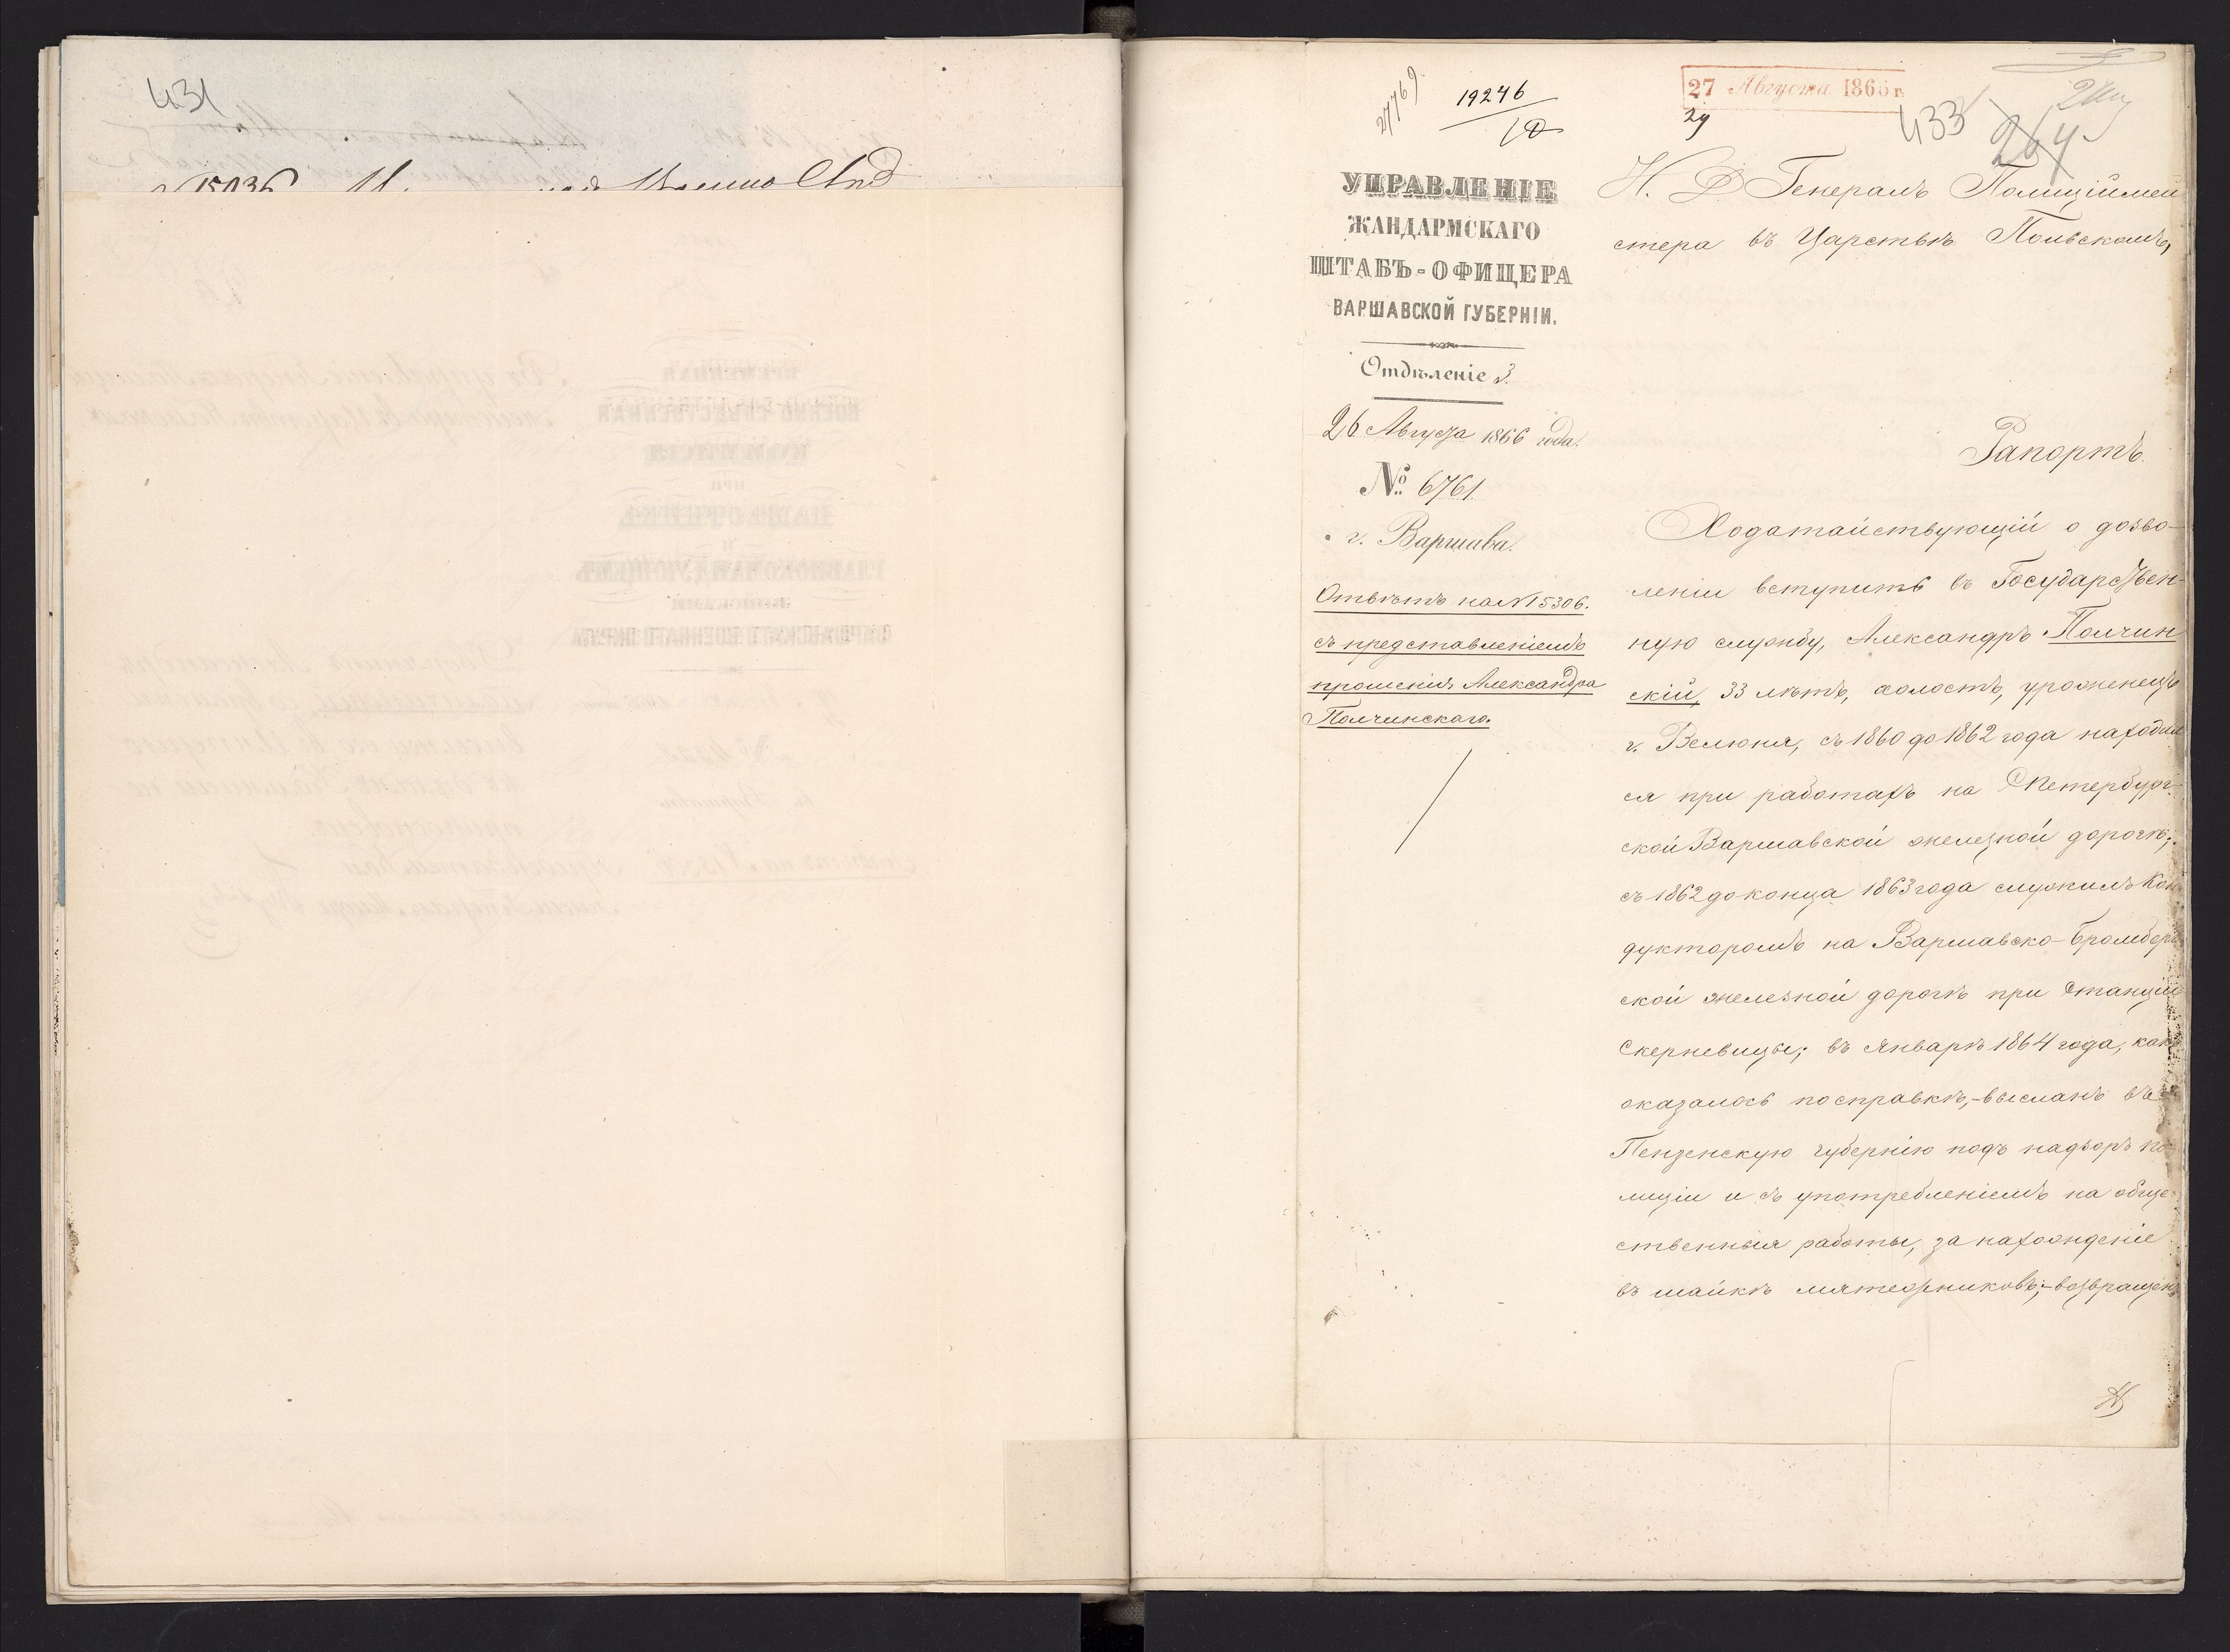 431
27769
19246
10
27 Августа 1866 г.
29
433
264
УПРАВЛЕНІЕ
ЖАНДАРМСКАГО
ШТАБЪ-ОФИЦЕРА
ВАРШАВСКОЙ ГУБЕРНІИ.
Отдѣленіе 3.
26 Августа 1866 года.
№ 6761
г. Варшава.
Отвѣтъ на № 15306.
съ представленіемъ
прошенія Александра
Полчинскаго.
И. Д. Генералъ Полиціймей
стера въ Царствѣ Польскомъ,
Рапортъ.
Ходатайствующій о дозво-
леніи вступить въ Государствен-
ную службу, Александръ Полчин
скій, 33 лѣтъ, холостъ, уроженецъ
г. Велюня, съ 1860 до 1862 года находил
ся при работахъ на СПетербург-
ской Варшавской железной дорогѣ;
съ 1862 до конца 1863 года служилъ Кон
дукторомъ на Варшавско-Бромберг
ской железной дорогѣ при Станціи
Скерневицы; въ Январѣ 1864 года, какъ
оказалось по справкѣ,-высланъ въ
Пензенскую губернію подъ надзоръ по
лиціи и съ употребленіемъ на обще
ственныя работы, за нахожденіе
въ шайкѣ мятежниковъ;-возвращенъ